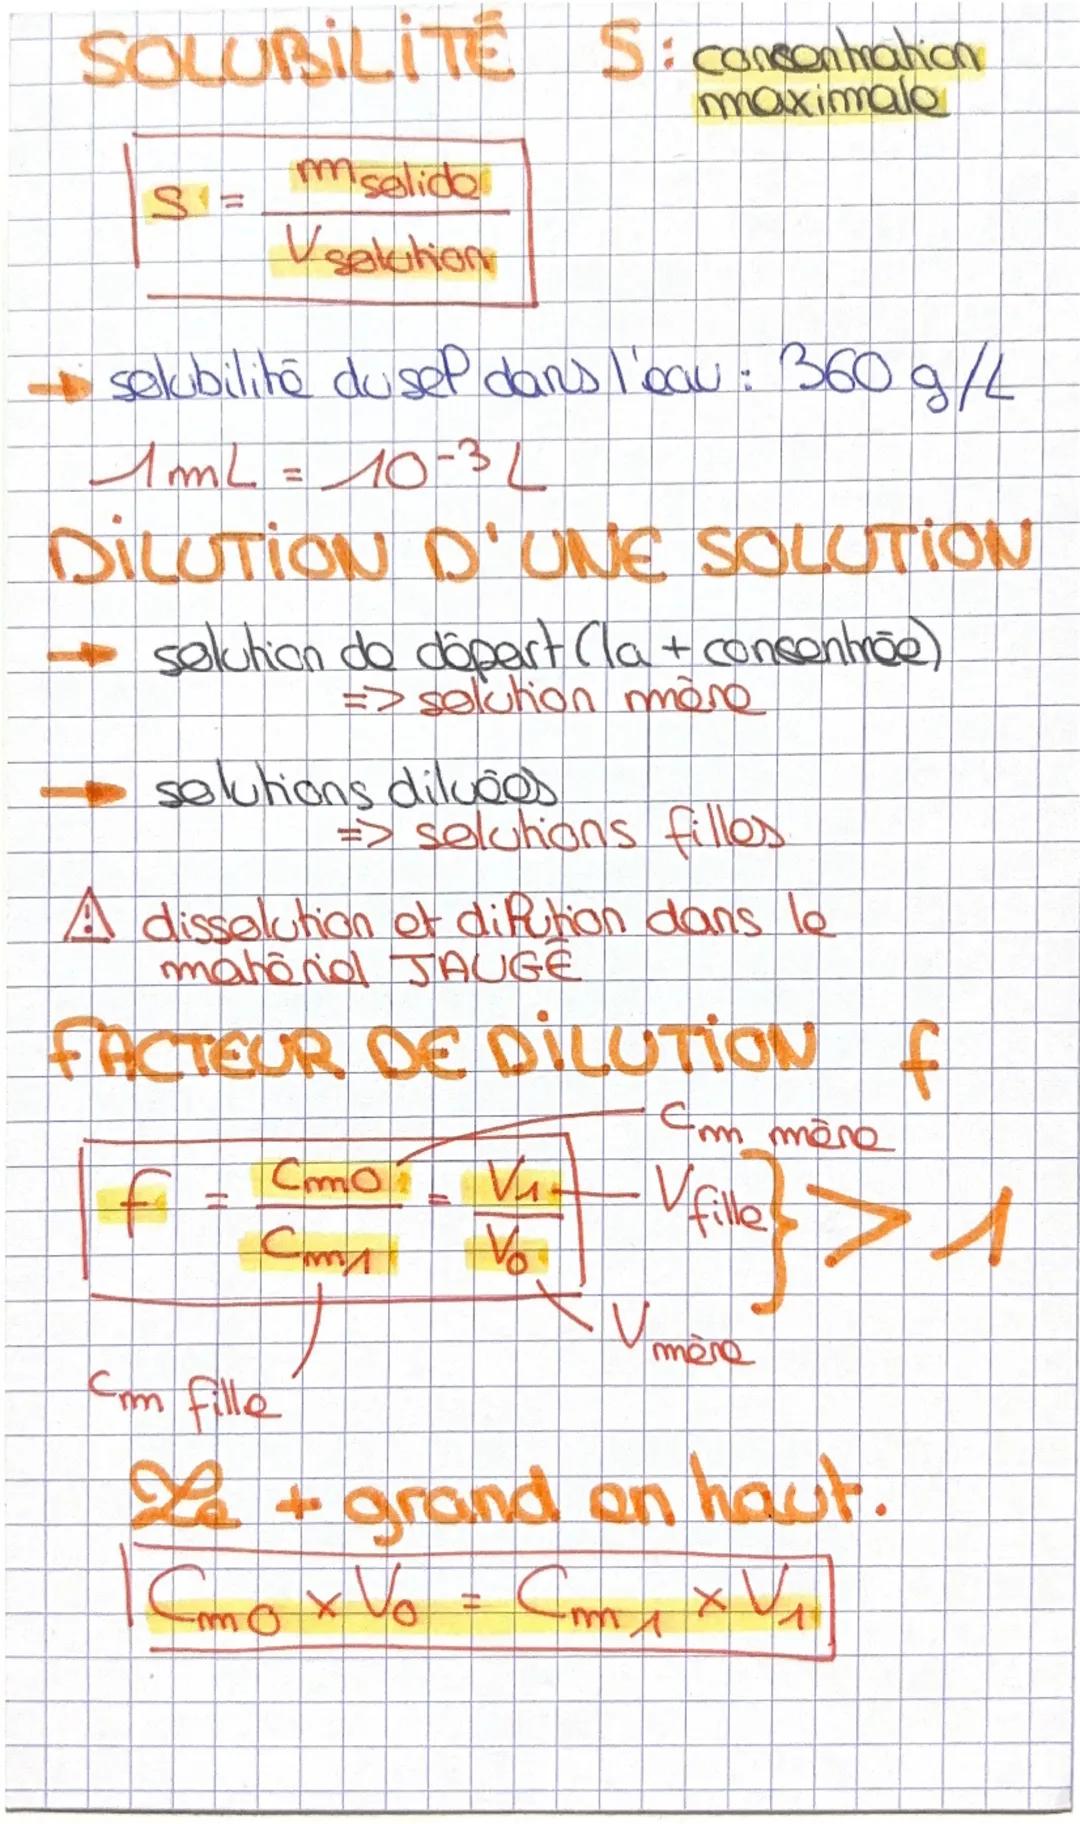 SOLUBILITÉ S: consentration
maximale
S = m solide / V solution
→ solubilité du sel dans l'eau : 360 g/L
1 mL = 10⁻³ L
DILUTION D'UNE SOLUTION
→ solution de départ (la + consentrée)
=> solution mère
→ solutions diluées
=> solutions filles
⚠ dissolution et dilution dans le
matériel JAUGÉ
FACTEUR DE DILUTION f
Cm mère
f = Cm0 / Cm1 = V1 / V0
V fille } > 1
V mère
Cm fille
Le + grand en haut.
Cm0 x V0 = Cm1 x V1